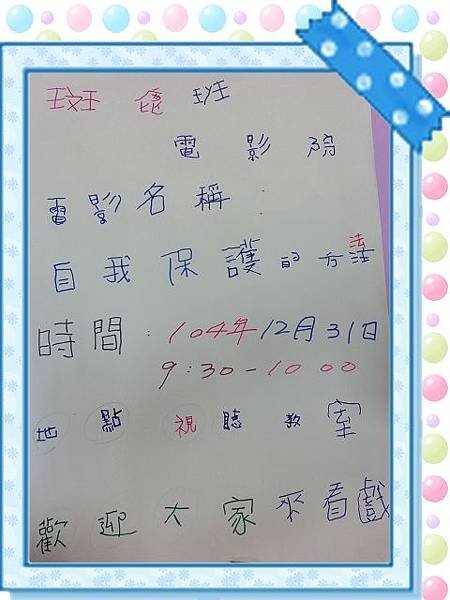 斑 班
電影院
電影名稱:
法
自我保護的方法
時間:104年12月31日
9:30-10:00
地點 視聽教室
歡迎大家來看戲